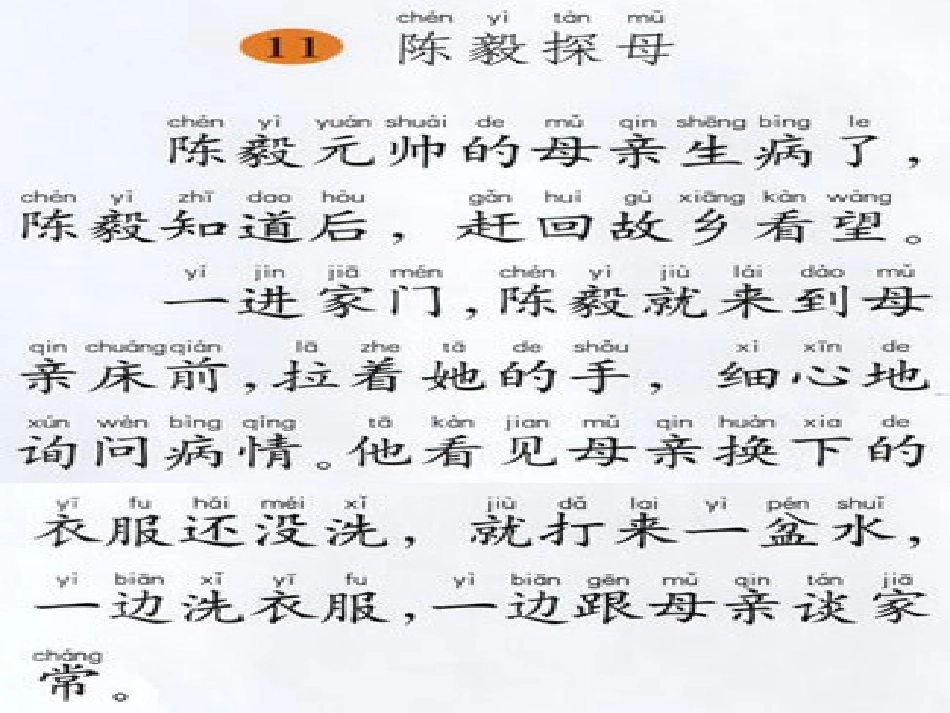 chén yì tàn mǔ
11 陈毅探母
chén yì yuán shuài de mǔ qin shēng bìng le
陈毅元帅的母亲生病了，
chén yì zhī dao hòu gǎn huí gù xiāng kàn wàng
陈毅知道后，赶回故乡看望。
yí jìn jiā mén chén yì jiù lái dào mǔ
一进家门，陈毅就来到母
qin chuáng qián lā zhe tā de shǒu xì xīn de
亲床前，拉着她的手，细心地
xún wèn bìng qíng tā kàn jian mǔ qin huàn xia de
询问病情。他看见母亲换下的
yī fu hái méi xǐ jiù dǎ lai yì pén shuǐ
衣服还没洗，就打来一盆水，
yì biān xǐ yī fu yì biān gēn mǔ qin tán jiā
一边洗衣服，一边跟母亲谈家
cháng
常。